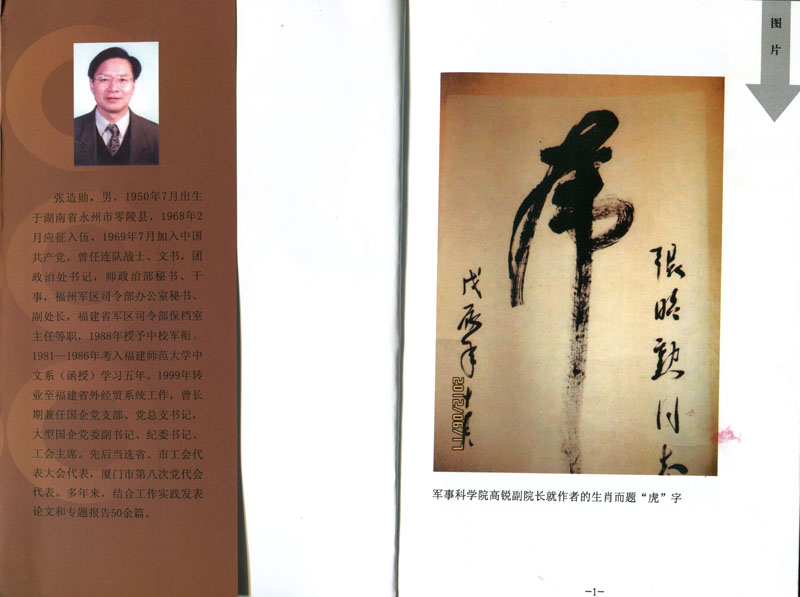 张造勋，男，1950年7月出生
于湖南省永州市零陵县，1968年2
月应征入伍，1969年7月加入中国
共产党。曾任连队战士、文书，团
政治处书记，师政治部秘书、干
事，福州军区司令部办公室秘书、
副处长，福建省军区司令部保档室
主任等职，1988年授予中校军衔。
1981—1986年考入福建师范大学中
文系（函授）学习五年。1999年转
业至福建省外经贸系统工作，曾长
期兼任国企党支部、党总支书记，
大型国企党委副书记、纪委书记、
工会主席。先后当选省、市工会代
表大会代表，厦门市第八次党代会
代表。多年来，结合工作实践发表
论文和专题报告50余篇。
图片
虎
戊辰年
2012/06/17
勋同志
军事科学院高锐副院长就作者的生肖而题“虎”字
—1—